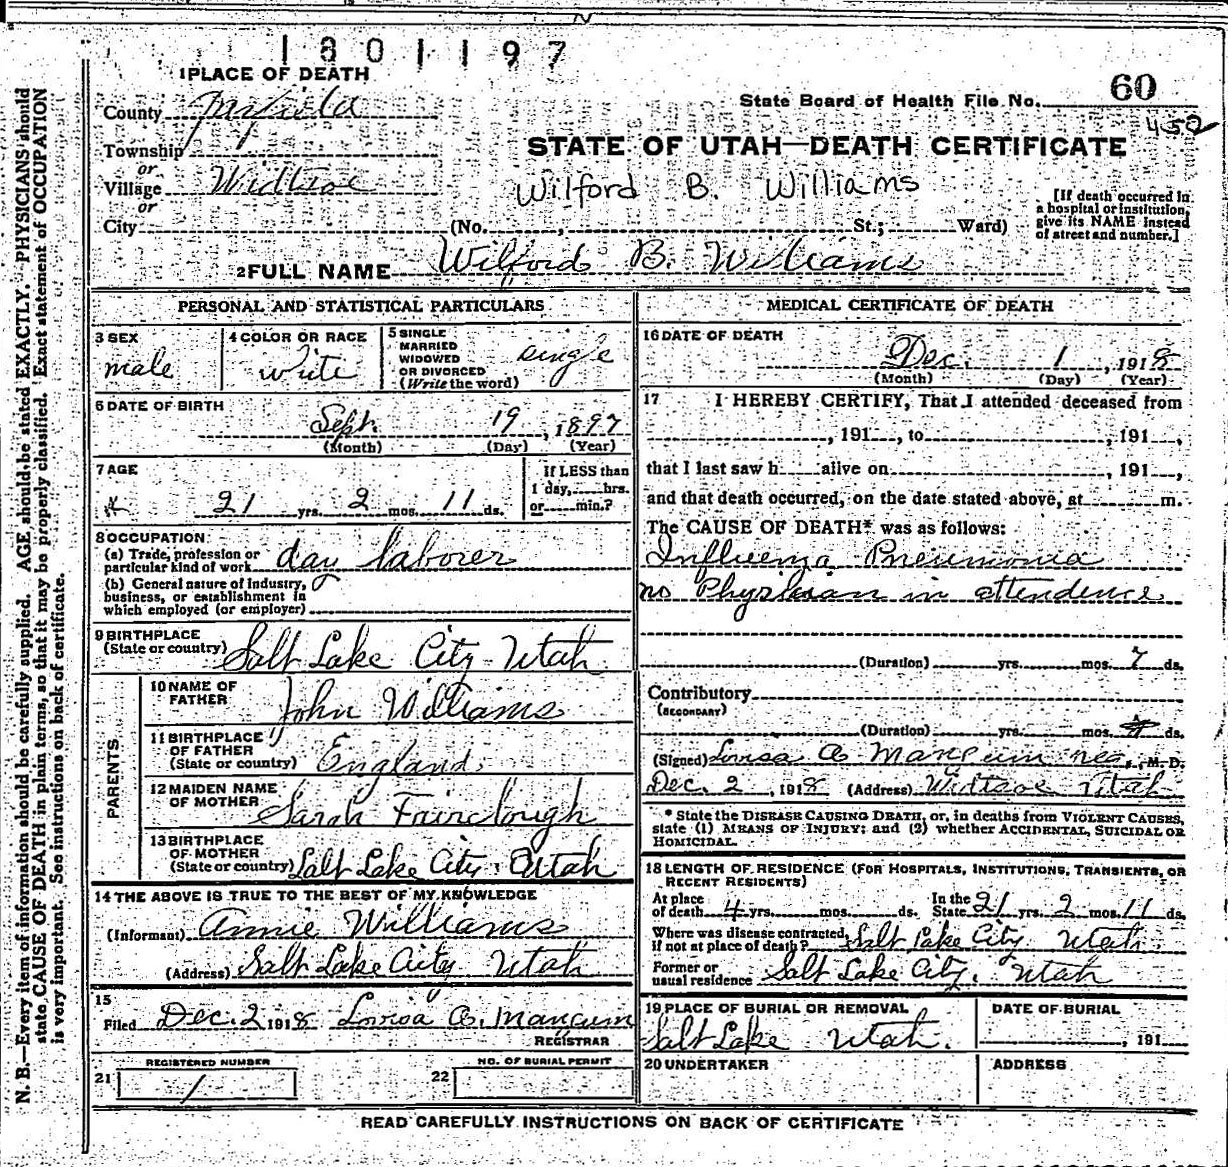 1801197
1 PLACE OF DEATH
County
State Board of Health File No. 60
452
Township
STATE OF UTAH—DEATH CERTIFICATE
or
Village Widtsoe
Wilford B. Williams
or
City (No. , St.; Ward)
[If death occurred in
a hospital or institution,
give its NAME instead
of street and number.]
2 FULL NAME Wilford B. Williams
PERSONAL AND STATISTICAL PARTICULARS
3 SEX
male
4 COLOR OR RACE
write
5 SINGLE
MARRIED
WIDOWED
OR DIVORCED
(Write the word)
single
6 DATE OF BIRTH
Sept. 19, 1897
(Month) (Day) (Year)
7 AGE
21 yrs. 2 mos. 11 ds.
If LESS than
1 day, hrs.
or min.?
8 OCCUPATION
(a) Trade, profession or
particular kind of work day laborer
(b) General nature of industry,
business, or establishment in
which employed (or employer)
9 BIRTHPLACE
(State or country) Salt Lake City Utah
PARENTS
10 NAME OF
FATHER John Williams
11 BIRTHPLACE
OF FATHER
(State or country) England
12 MAIDEN NAME
OF MOTHER Sarah Fairclough
13 BIRTHPLACE
OF MOTHER
(State or country) Salt Lake City Utah
14 THE ABOVE IS TRUE TO THE BEST OF MY KNOWLEDGE
(Informant) Annie Williams
(Address) Salt Lake City Utah
15
Filed Dec. 2 1918 Lovisa A. Mangum
REGISTRAR
REGISTERED NUMBER
21 1
NO. OF BURIAL PERMIT
22
MEDICAL CERTIFICATE OF DEATH
16 DATE OF DEATH
Dec. 1, 1918
(Month) (Day) (Year)
17 I HEREBY CERTIFY, That I attended deceased from
, 191 , to , 191 ,
that I last saw h alive on , 191 ,
and that death occurred, on the date stated above, at m.
The CAUSE OF DEATH* was as follows:
Influenza Pneumonia
no Physician in attendence
(Duration) yrs. mos. 7 ds.
Contributory
(SECONDARY)
(Duration) yrs. mos. ds.
(Signed) Lovisa A Mangum Reg., M.D.
Dec. 2, 1918 (Address) Widtsoe Utah
* State the DISEASE CAUSING DEATH, or, in deaths from VIOLENT CAUSES,
state (1) MEANS OF INJURY; and (2) whether ACCIDENTAL, SUICIDAL OR
HOMICIDAL.
18 LENGTH OF RESIDENCE (FOR HOSPITALS, INSTITUTIONS, TRANSIENTS, OR
RECENT RESIDENTS)
At place
of death 4 yrs. mos. ds.
In the
State 21 yrs. 2 mos. 11 ds.
Where was disease contracted,
if not at place of death? Salt Lake City Utah
Former or
usual residence Salt Lake City, Utah
19 PLACE OF BURIAL OR REMOVAL
Salt Lake Utah.
DATE OF BURIAL
, 191
20 UNDERTAKER
ADDRESS
READ CAREFULLY INSTRUCTIONS ON BACK OF CERTIFICATE
N. B.—Every item of information should be carefully supplied. AGE should be stated EXACTLY. PHYSICIANS should
state CAUSE OF DEATH in plain terms, so that it may be properly classified. Exact statement of OCCUPATION
is very important. See instructions on back of certificate.